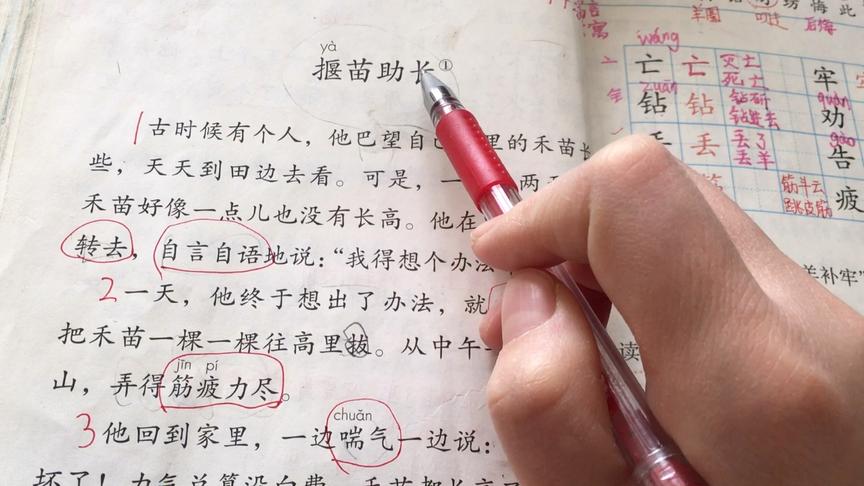 yà
揠苗助长①
1 古时候有个人，他巴望自己 里的禾苗长
些，天天到田边去看。可是，一 两天
禾苗好像一点儿也没有长高。他在
转去，自言自语地说：“我得想个办法
2 一天，他终于想出了办法，就
把禾苗一棵一棵往高里拔。从中午
jīn pí
山，弄得筋疲力尽。
chuǎn
3 他回到家里，一边喘气一边说：
坏了！力气总算没白费，禾苗都长高了
悔 此
后悔
寓
wáng
亡 亡 灭亡 牢
死亡
zuān quàn
钻 钻 钻研 劝
钻进去
gào
丢 丢了 告
丢羊
筋斗云 疲
跳皮筋
羊补牢”
读